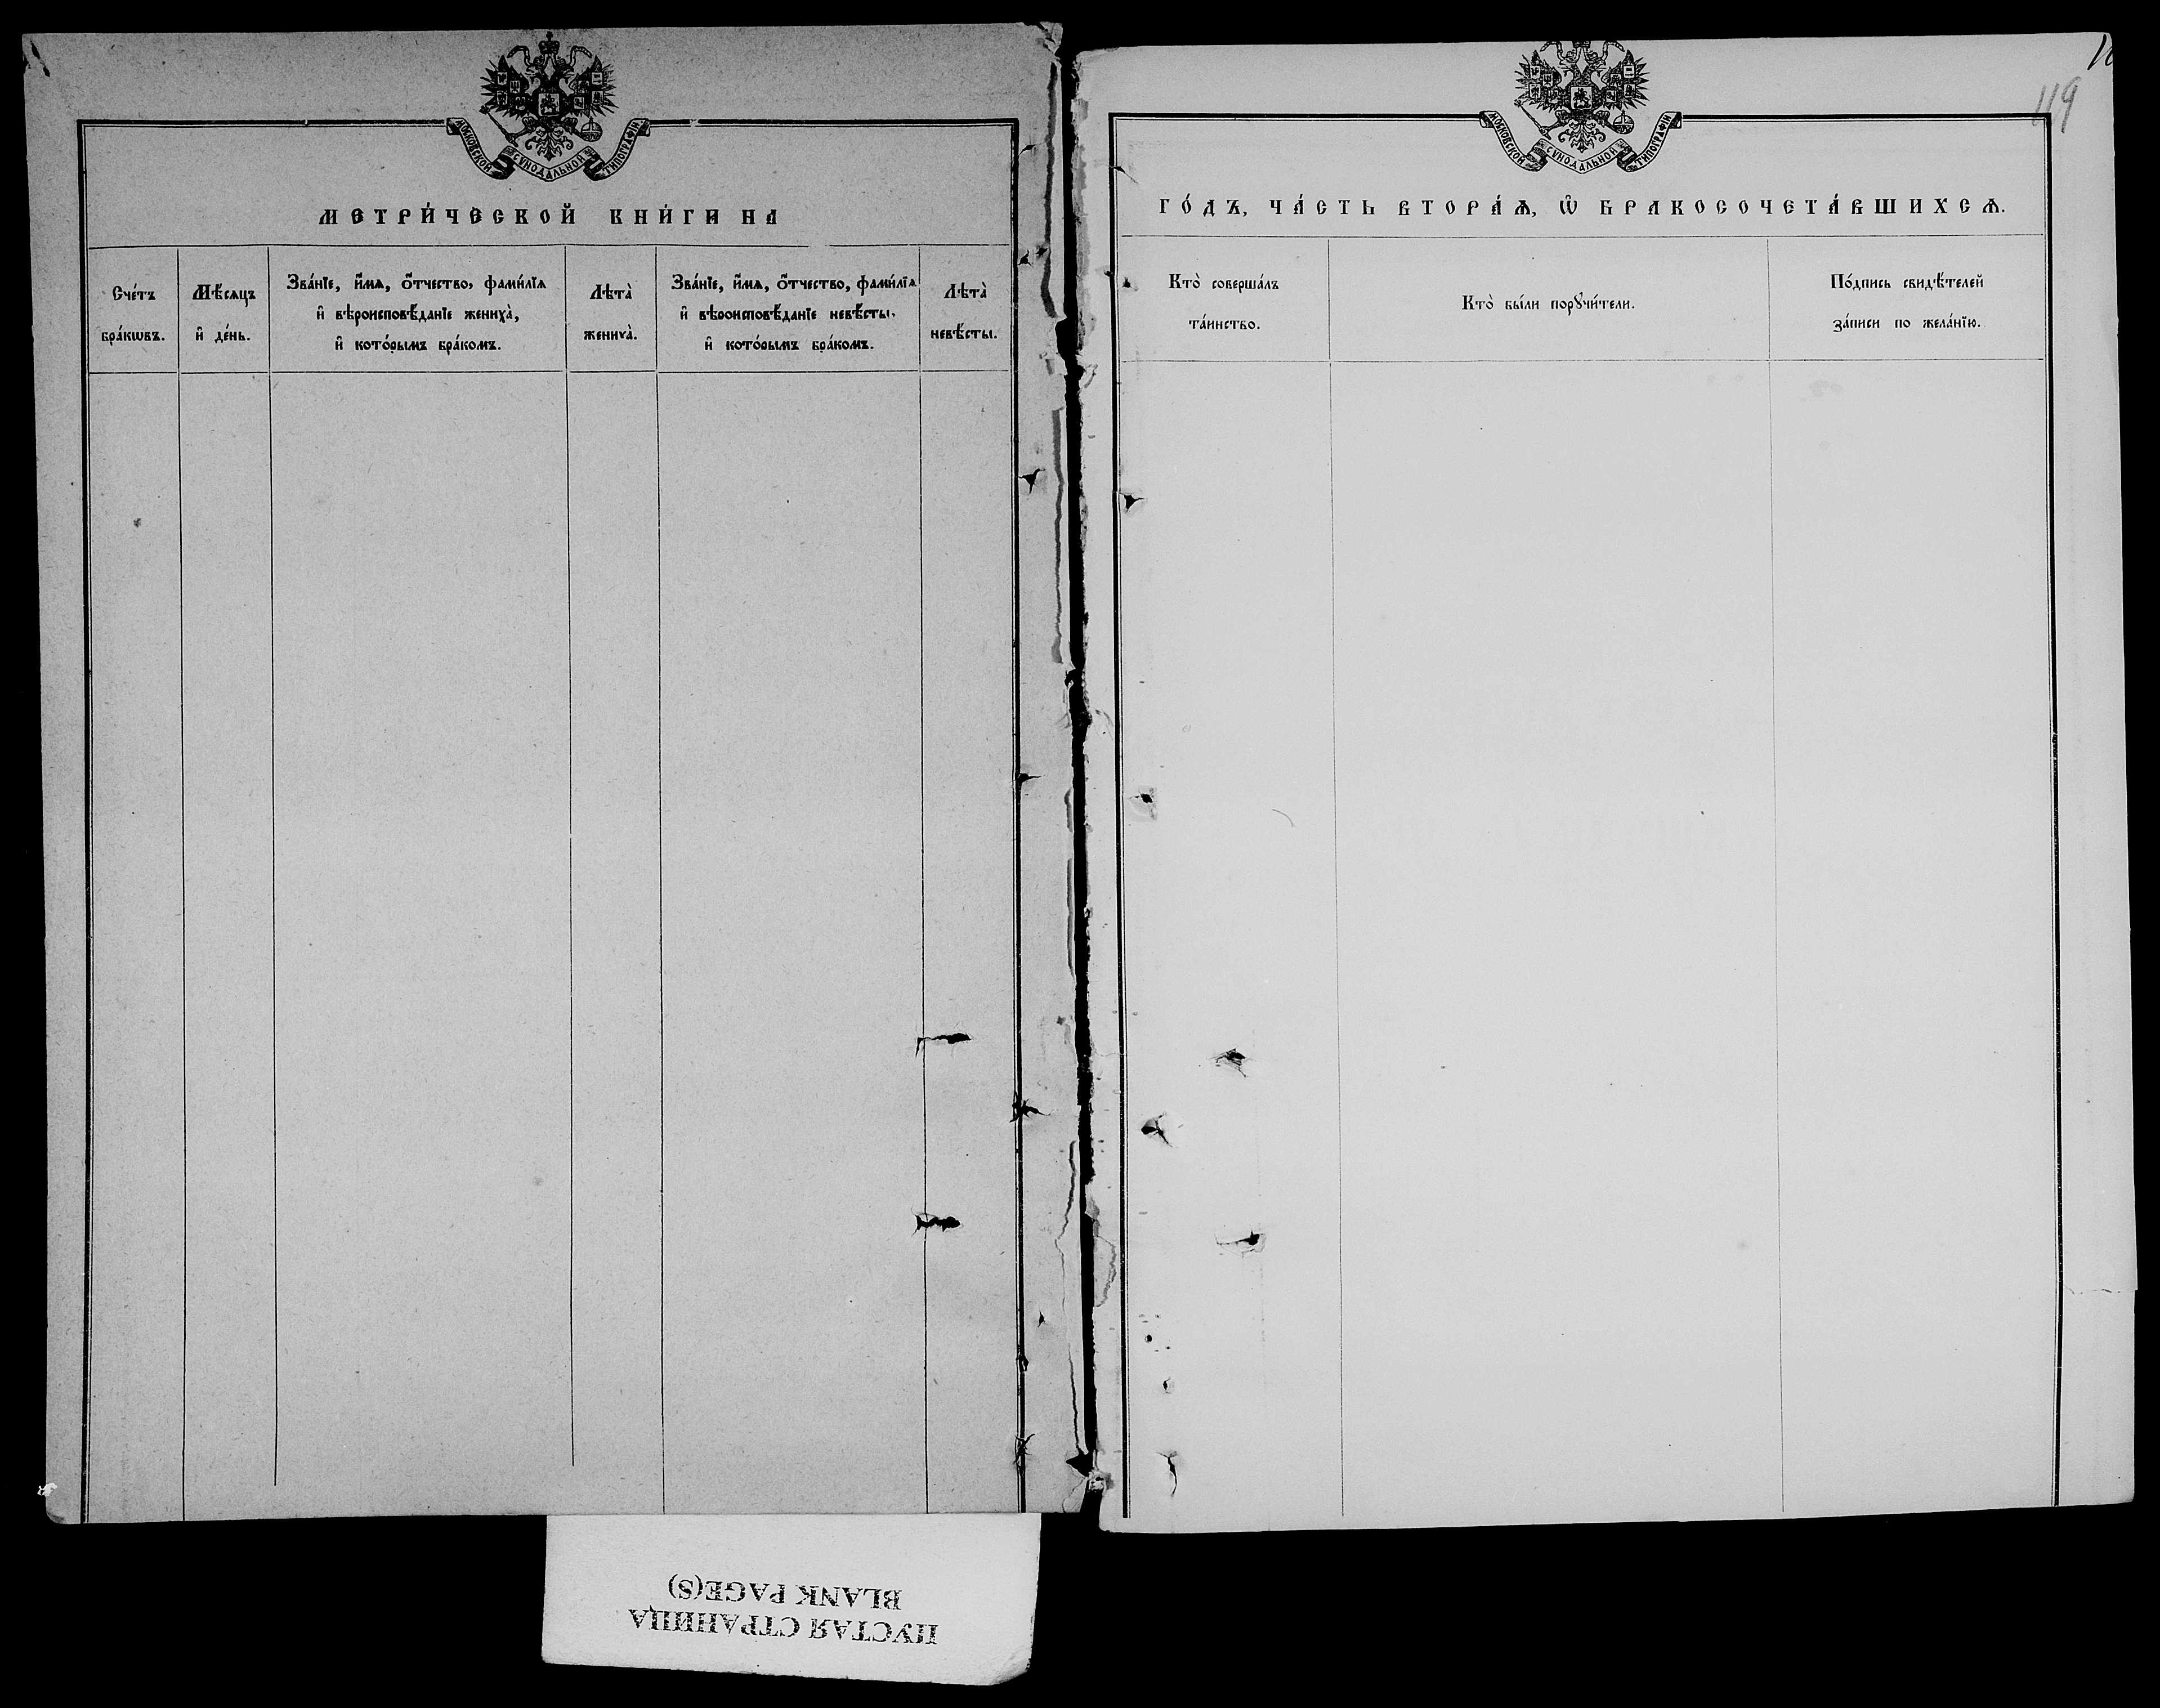 МОСКОВСКОЙ СѴНОДАЛЬНОЙ ТИПОГРАФІИ
МЕТРИ́ЧЕСКОЙ КНИ́ГИ НА
Сче́тъ
бра́кѡвъ.
Мѣ́сяцъ
и҆ де́нь.
Зва́нїе, и҆́мѧ, ѻ҆́тчество, фами́лїѧ
и҆ вѣроисповѣ́данїе жениха̀,
и҆ кото́рымъ бра́комъ.
Лѣта̀
жениха̀.
Зва́нїе, и҆́мѧ, ѻ҆́тчество, фами́лїѧ
и҆ вѣроисповѣ́данїе невѣ́сты,
и҆ кото́рымъ бра́комъ.
Лѣта̀
невѣ́сты.
119
МОСКОВСКОЙ СѴНОДАЛЬНОЙ ТИПОГРАФІИ
ГО́ДЪ, ЧА́СТЬ ВТОРА́Ѧ, Ѡ҆ БРАКОСОЧЕТА́ВШИХСѦ.
Кто̀ соверша́лъ
та́инство.
Кто̀ бы́ли порꙋчи́тели.
По́дпись свидѣ́телей
за́писи по жела́нїю.
ПУСТАЯ СТРАНИЦА
BLANK PAGE(S)